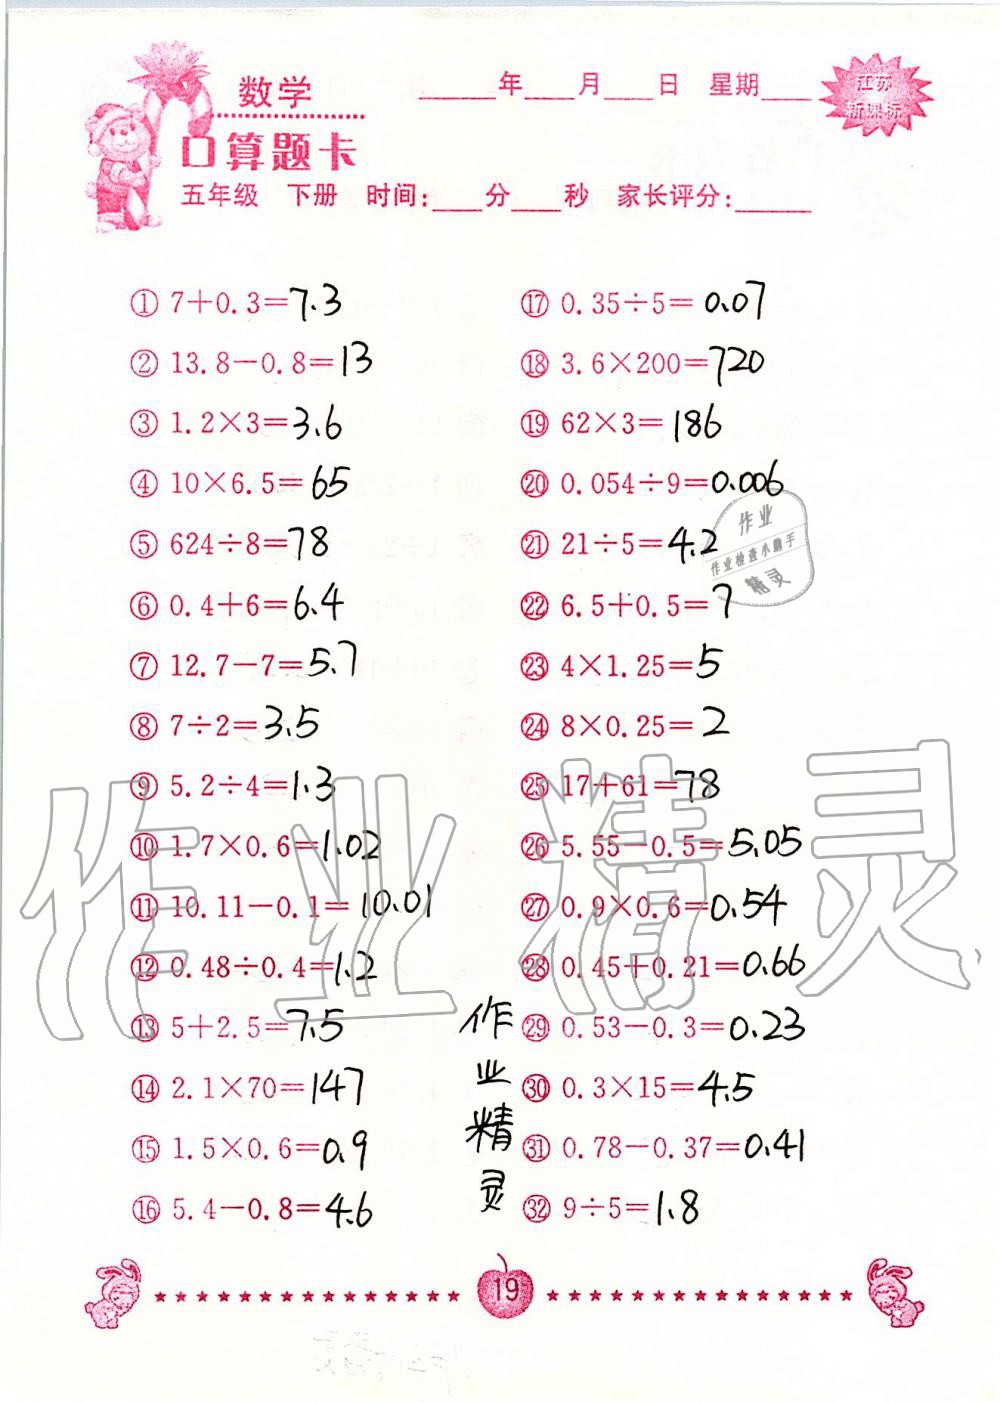 数学
____年____月____日 星期____
江苏
新课标
口算题卡
五年级 下册 时间:____分____秒 家长评分:____
① 7+0.3=7.3
② 13.8-0.8=13
③ 1.2×3=3.6
④ 10×6.5=65
⑤ 624÷8=78
⑥ 0.4+6=6.4
⑦ 12.7-7=5.7
⑧ 7÷2=3.5
⑨ 5.2÷4=1.3
⑩ 1.7×0.6=1.02
⑪ 10.11-0.1=10.01
⑫ 0.48÷0.4=1.2
⑬ 5+2.5=7.5
⑭ 2.1×70=147
⑮ 1.5×0.6=0.9
⑯ 5.4-0.8=4.6
⑰ 0.35÷5=0.07
⑱ 3.6×200=720
⑲ 62×3=186
⑳ 0.054÷9=0.006
㉑ 21÷5=4.2
㉒ 6.5+0.5=7
㉓ 4×1.25=5
㉔ 8×0.25=2
㉕ 17+61=78
㉖ 5.55-0.5=5.05
㉗ 0.9×0.6=0.54
㉘ 0.45+0.21=0.66
㉙ 0.53-0.3=0.23
㉚ 0.3×15=4.5
㉛ 0.78-0.37=0.41
㉜ 9÷5=1.8
作业
作业检查小助手
精灵
作业精灵
作业精灵
19